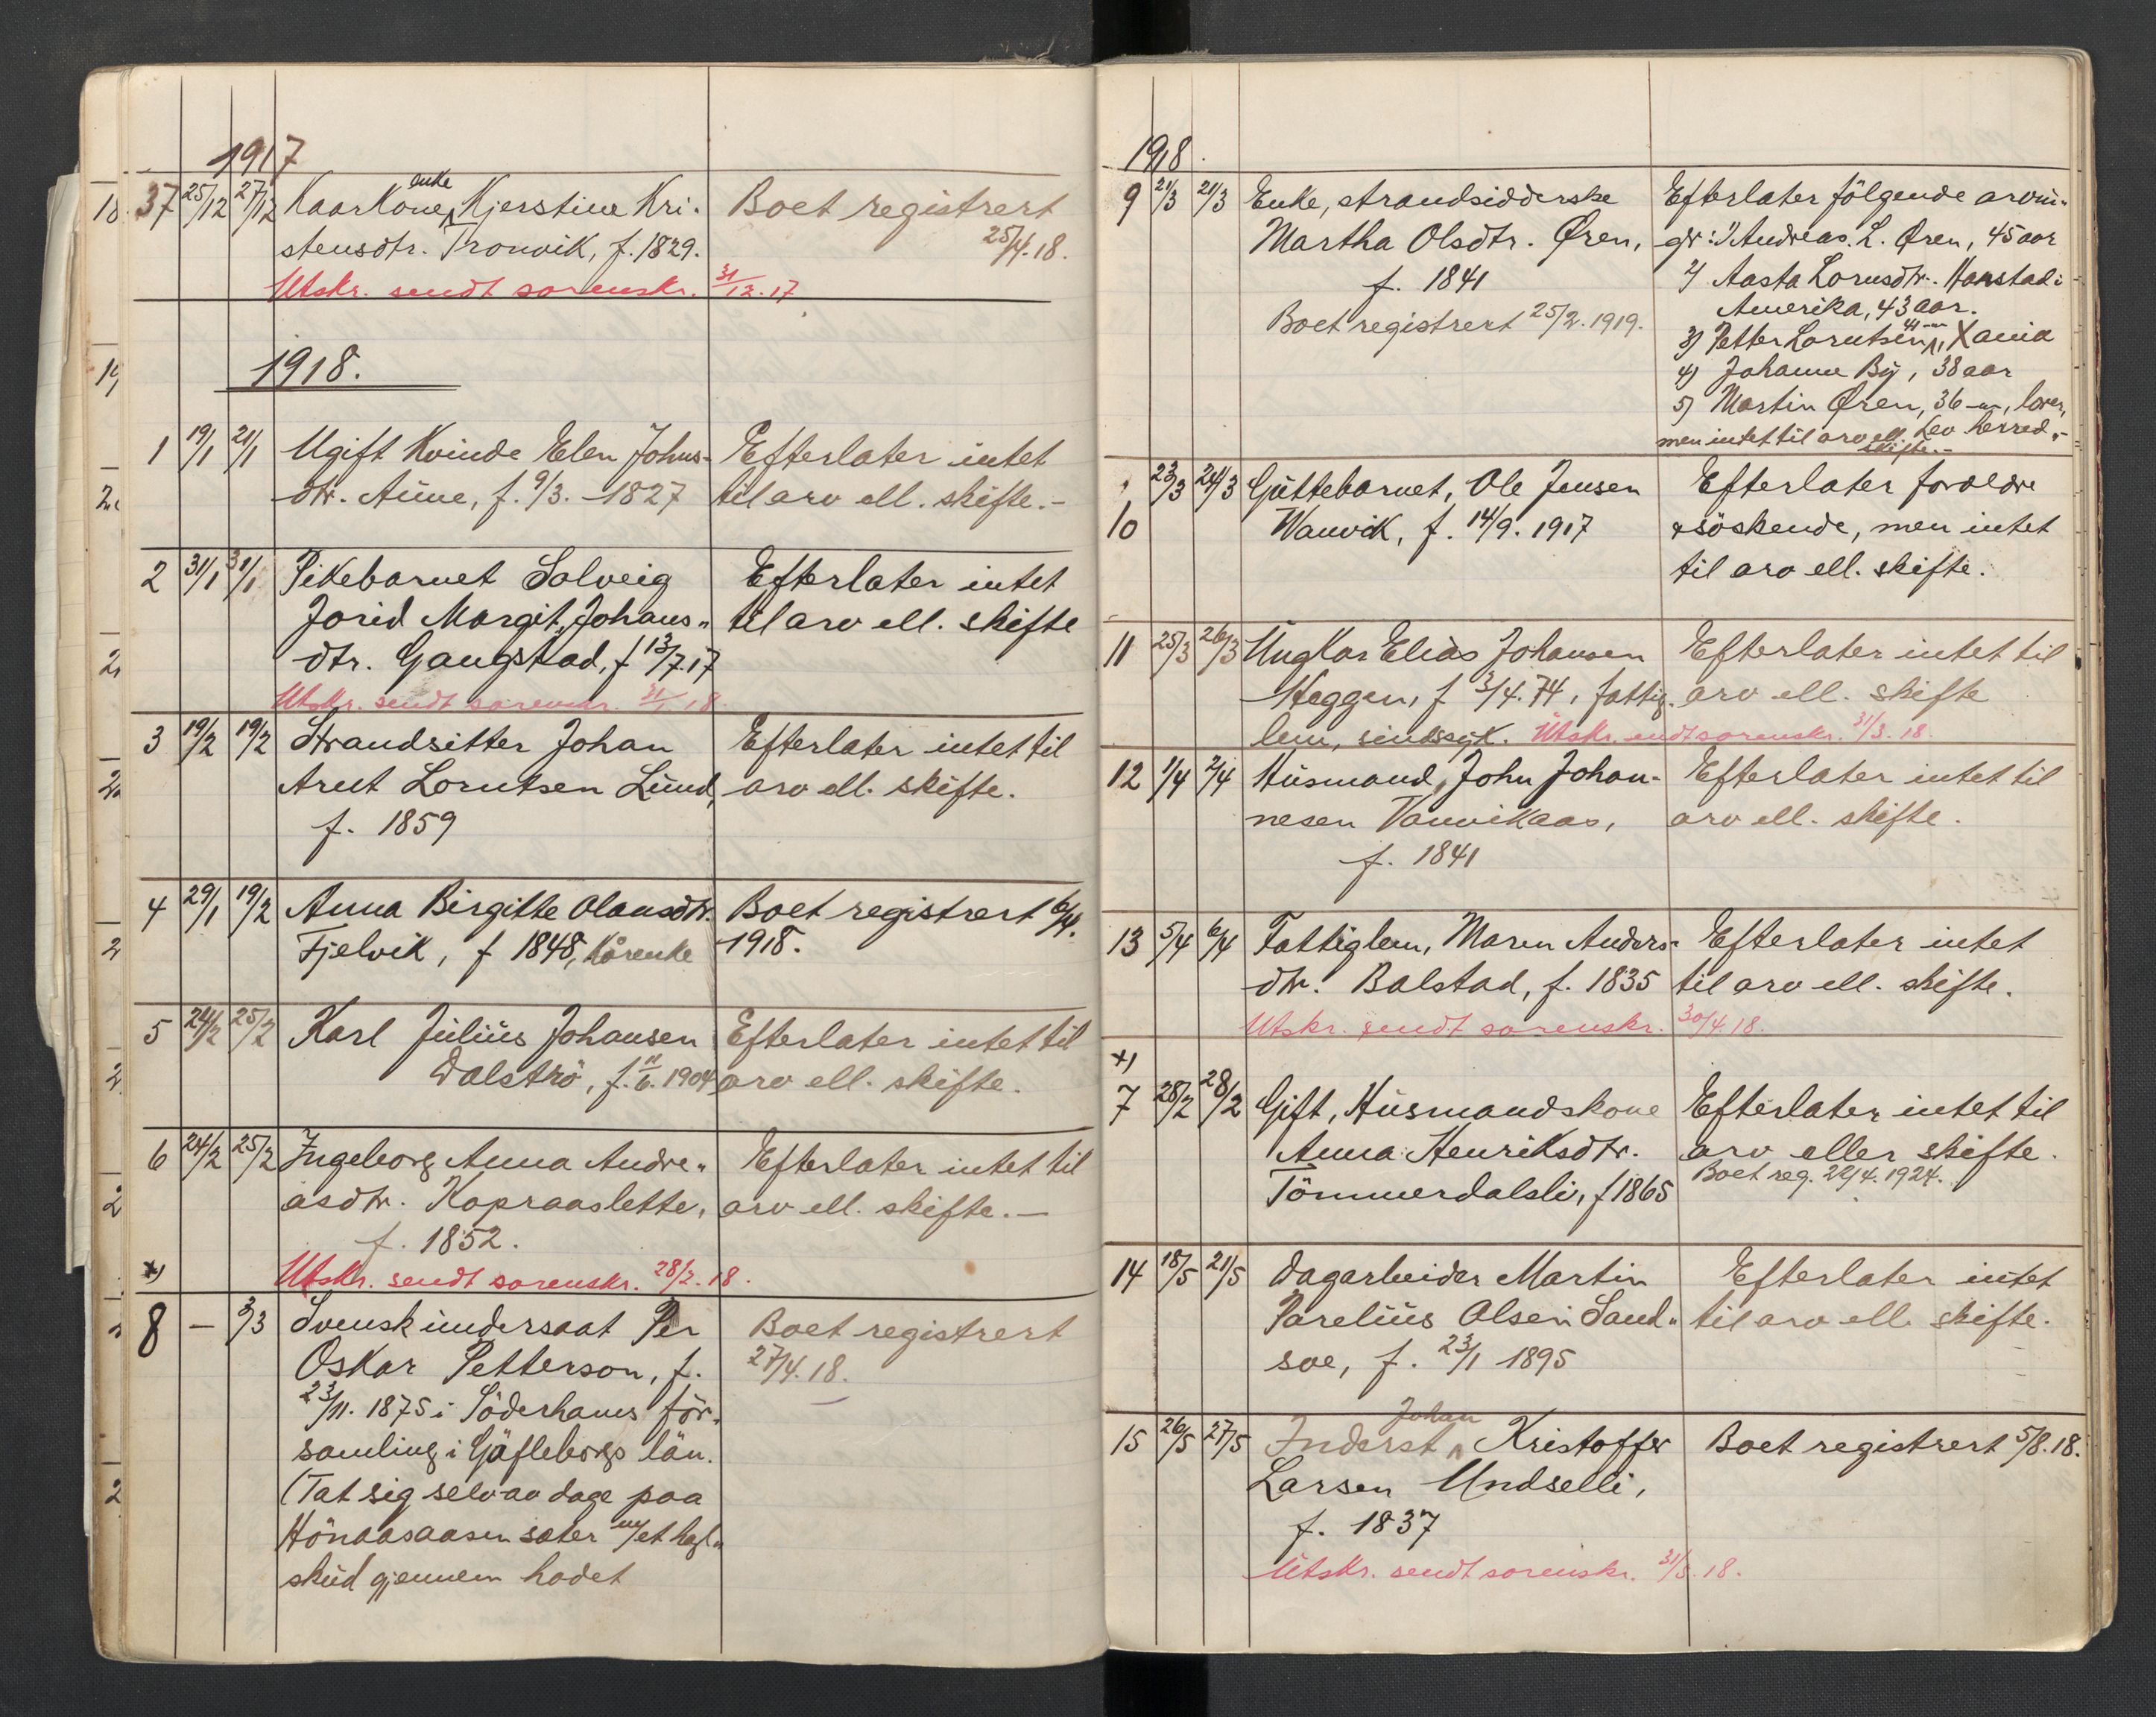 1917
37 25/12 27/12 Kaarkone enke Kjerstine Kri- Boet registrert
stensdtr. Tronvik, f. 1829. 25/4.18.
Utskr. sendt sorenskr. 31/12.17
1918.
1 19/1 21/1 Ugift Kvinde Elen Johns- Efterlater intet
dtr. Aune, f. 9/3. -1827 til arv ell. skifte.-
2 31/1 31/1 Pikebarnet Solveig Efterlater intet
Jorid Margit Johans- til arv ell. skifte
dtr. Gangstad, f 13/7.17
Utskr. sendt sorenskr. 31/1 18.
3 19/2 19/2 Strandsitter Johan Efterlater intet til
Arnt Lorntsen Lund, arv ell. skifte.
f. 1859
4 29/1 19/2 Anna Birgitte Olausdtr. Boet registrert 6/4.
Fjelvik, f 1848, Kårenke 1918.
5 24/2 25/2 Karl Julius Johansen Efterlater intet til
Dalströ, f. 11/6. 1904 arv ell. skifte.
6 24/2 25/2 Ingeborg Anna Andre- Efterlater intet til
asdtr. Kopraaslette, arv ell. skifte.-
f. 1852.
Utskr. sendt sorenskr. 28/2.18.
x)
8 - 3/3 Svensk undersaat Per Boet registrert
Oskar Petterson, f. 27/4.18.
23/11. 1875 i Söderhams för-
samling i Gäfleborgs län.
(Tat sig selv av dage paa
Hönaasaasen sæter m/et hagl-
skud gjennem hodet
1918.
9 21/3 21/3 Enke, strandsidderske Efterlater fölgende arvin-
Martha Olsdtr. Øren, ger: 1) Andreas L. Øren, 45 aar
f. 1841 2) Aasta Lornsdtr. Hanstad i
Amerika, 43 aar.
Boet registrert 25/2. 1919. 3) Petter Lorntsen, 41 -"-, Xania
4) Johanne By, 38 aar
5) Martin Øren, 36 -"-,
men intet til arv ell. skifte.- Lev herred.-
10 23/3 24/3 Guttebarnet, Ole Jensen Efterlater forældre
Wanvik, f. 14/9. 1917 & söskende, men intet
til arv ell. skifte.
11 25/3 26/3 Ungkar Elias Johansen Efterlater intet til
Heggen, f 3/4.74, fattig- arv ell. skifte
lem, sindssyk. Utskr. sendt sorenskr. 31/3.18.
12 1/4 2/4 Husmand, John Johan- Efterlater intet til
nesen Vanvikaas, arv ell. skifte.
f. 1841
13 5/4 6/4 Fattiglem, Maren Anders- Efterlater intet
dtr. Balstad, f. 1835 til arv ell. skifte.
Utskr. sendt sorenskr. 30/4 18.
x)
7 28/2 28/2 Gift, Husmandskone Efterlater intet til
Anna Henriksdtr. arv eller skifte.
Tömmerdalsli, f 1865 Boet reg. 29/4. 1924.
14 18/5 21/5 Dagarbeider Martin Efterlater intet
Parelius Olsen Sand- til arv ell. skifte.
soe, f. 23/1 1895
15 26/5 27/5 Inderst Johan Kristoffer Boet registrert 5/8.18.
Larsen Undselli,
f. 1837
Utskr. sendt sorenskr. 31/5.18.